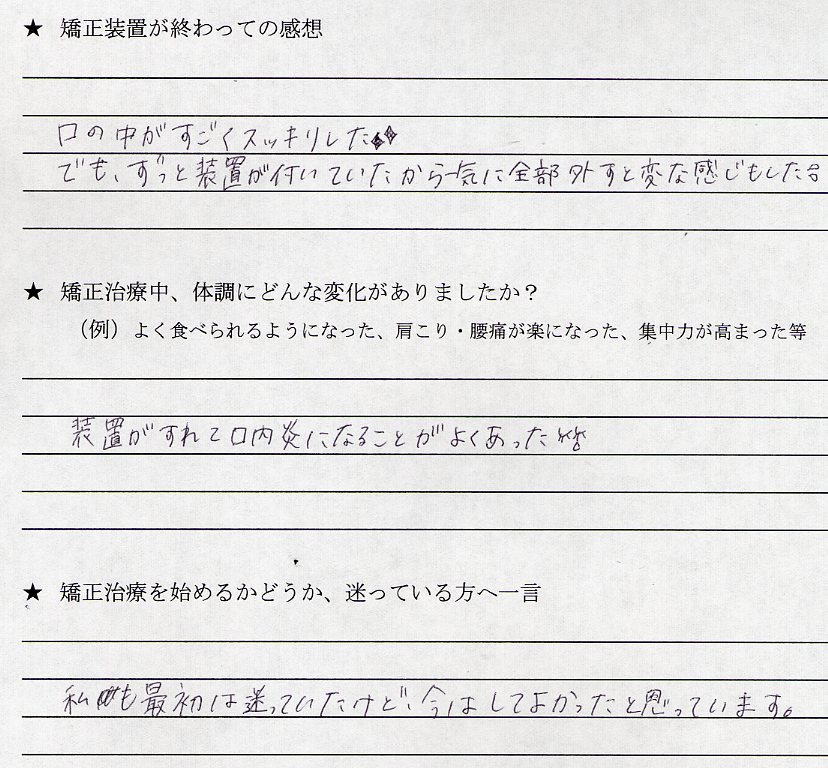 ★ 矯正装置が終わっての感想
口の中がすごくスッキリした
でも、ずっと装置が付いていたから一気に全部外すと変な感じもした
★ 矯正治療中、体調にどんな変化がありましたか？
（例）よく食べられるようになった、肩こり・腰痛が楽になった、集中力が高まった等
装置がすれて口内炎になることがよくあった
★ 矯正治療を始めるかどうか、迷っている方へ一言
私も最初は迷っていたけど、今はしてよかったと思っています。